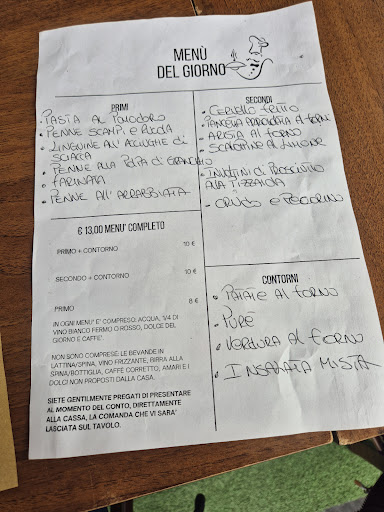 MENÙ
DEL GIORNO
PRIMI
• PASTA AL POMODORO
• PENNE SCAMPI E RUCOLA
• LINGUINE ALL' ACCIUGHE DI
SCIACCA
• PENNE ALLA POLPA DI GRANCHIO
• FARINATA
• PENNE ALL' ARRABBIATA
€ 13,00 MENU' COMPLETO
PRIMO + CONTORNO 10 €
SECONDO + CONTORNO 10 €
PRIMO 8 €
IN OGNI MENU' E' COMPRESO: ACQUA, 1/4 DI
VINO BIANCO FERMO O ROSSO, DOLCE DEL
GIORNO E CAFFE'.
NON SONO COMPRESE: LE BEVANDE IN
LATTINA/SPINA, VINO FRIZZANTE, BIRRA ALLA
SPINA/BOTTIGLIA, CAFFÈ CORRETTO, AMARI E I
DOLCI NON PROPOSTI DALLA CASA.
SIETE GENTILMENTE PREGATI DI PRESENTARE
AL MOMENTO DEL CONTO, DIRETTAMENTE
ALLA CASSA, LA COMANDA CHE VI SARA'
LASCIATA SUL TAVOLO.
SECONDI
• CERVELLO FRITTO
• PANCETTA ARROTOLATA AL FORNO
• ARISTA AL FORNO
• SCALOPPINE AL LIMONE
• INVOLTINI DI PROSCIUTTO
ALLA PIZZAIOLA
• CRUDO E PECORINO
CONTORNI
• PATATE AL FORNO
• PURÈ
• VERDURA AL FORNO
• INSALATA MISTA